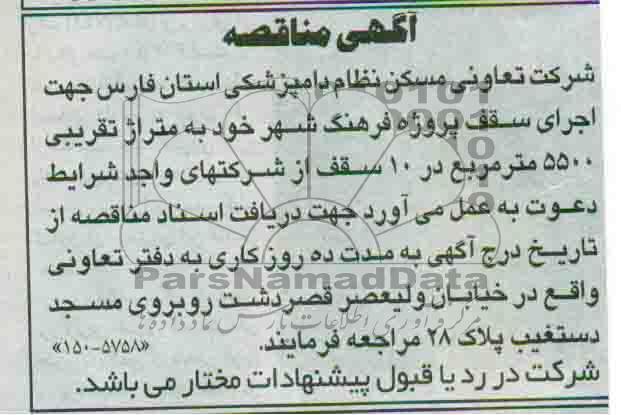 آگهی مناقصه
شرکت تعاونی مسکن نظام دامپزشکی استان فارس جهت
اجرای سقف پروژه فرهنگ شهر خود به متراژ تقریبی
۵۵۰۰ مترمربع در ۱۰ سقف از شرکتهای واجد شرایط
دعوت به عمل می آورد جهت دریافت اسناد مناقصه از
تاریخ درج آگهی به مدت ده روز کاری به دفتر تعاونی
ParsNamadData
واقع در خیابان ولیعصر قصردشت روبروی مسجد
دستغیب پلاک ۲۸ مراجعه فرمایند. «۱۵۰-۵۷۵۸»
شرکت در رد یا قبول پیشنهادات مختار می باشد.